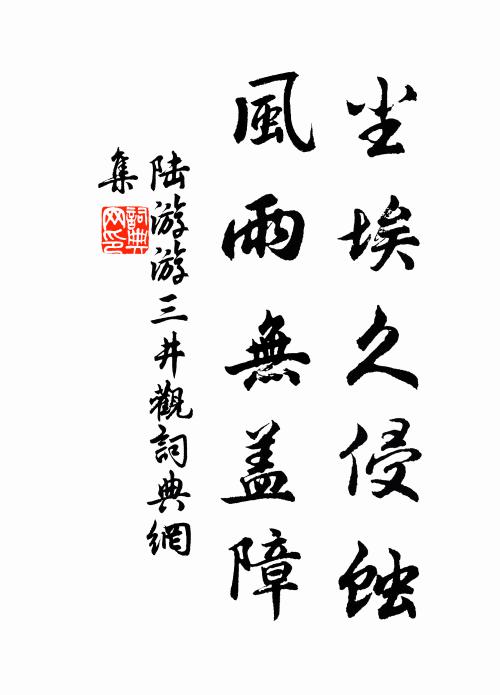 尘埃久侵蚀
風雨無盖障
陆游游三井觀詞典網
集
詞典网印